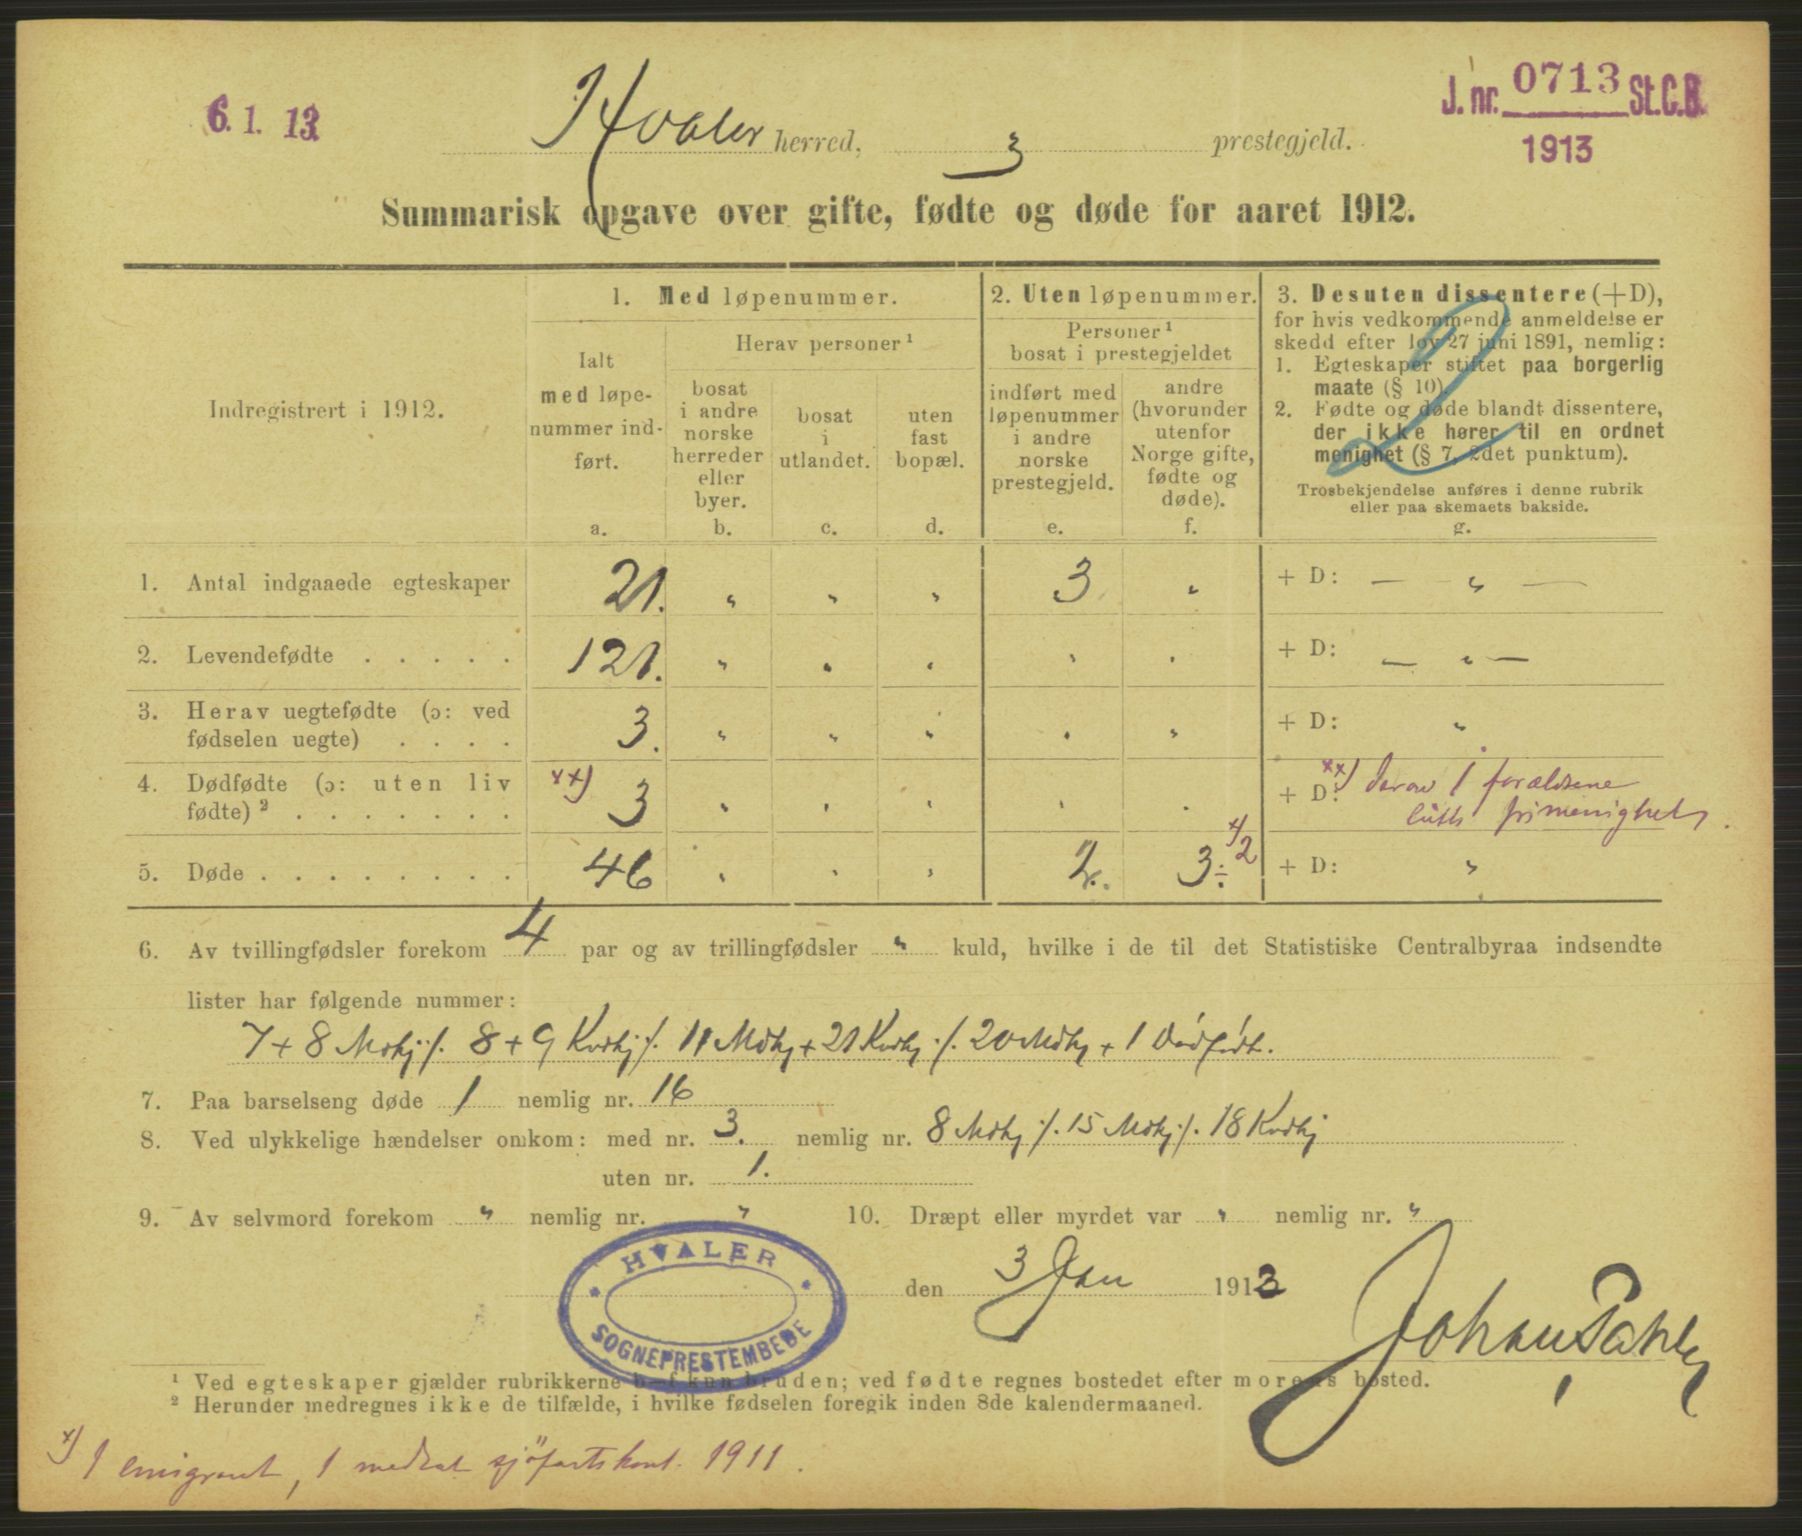 6. 1. 13.
J. nr. 0713 St.C.B.
1913
Hvaler herred, 3 prestegjeld.
Summarisk opgave over gifte, fødte og døde for aaret 1912.
Indregistrert i 1912.
1. Med løpenummer.
Ialt
med løpe-
nummer ind-
ført.
a.
Herav personer ¹
bosat
i andre
norske
herreder
eller
byer.
b.
bosat
i
utlandet.
c.
uten
fast
bopæl.
d.
2. Uten løpenummer.
Personer ¹
bosat i prestegjeldet
indført med
løpenummer
i andre
norske
prestegjeld.
e.
andre
(hvorunder
utenfor
Norge gifte,
fødte og
døde).
f.
3. Desuten dissentere (+D),
for hvis vedkommende anmeldelse er
skedd efter lov 27 juni 1891, nemlig:
1. Egteskaper stiftet paa borgerlig
maate (§ 10).
2. Fødte og døde blandt dissentere,
der ikke hører til en ordnet
menighet (§ 7, 2det punktum).
Trosbekjendelse anføres i denne rubrik
eller paa skemaets bakside.
g.
2
1. Antal indgaaede egteskaper 21. " " " 3 " + D: — " —
2. Levendefødte . . . . . 121. " " " " " + D: — " —
3. Herav uegtefødte (ɔ: ved
fødselen uegte) . . . . 3. " " " " " + D: "
4. Dødfødte (ɔ: uten liv
fødte) ² . . . . . . . xx) 3 " " " " " + D: xx) derav 1 forældrene
luth frimenighet.
5. Døde . . . . . . . . 46 " " " 2. 3 ÷ x/2 + D: "
6. Av tvillingfødsler forekom 4 par og av trillingfødsler " kuld, hvilke i de til det Statistiske Centralbyraa indsendte
lister har følgende nummer:
7 + 8 Mdkj ./. 8 + 9 Kvdkj ./. 11 Mdkj + 21 Kvdkj ./. 20 Mdkj + 1 Dødfødt.
7. Paa barselseng døde 1 nemlig nr. 16
8. Ved ulykkelige hændelser omkom: med nr. 3. nemlig nr. 8 Mdkj ./. 15 Mdkj ./. 18 Kvdkj
uten nr. 1.
9. Av selvmord forekom " nemlig nr. " 10. Dræpt eller myrdet var " nemlig nr. "
HVALER
SOGNEPRESTEMBEDE
den 3 Jan 1913
Johan
¹ Ved egteskaper gjælder rubrikkerne b—f kun bruden; ved fødte regnes bostedet efter morens bosted.
² Herunder medregnes ikke de tilfælde, i hvilke fødselen foregik inden 8de kalendermaaned.
x) 1 emigrant, 1 medtat sjöfartskont. 1911.